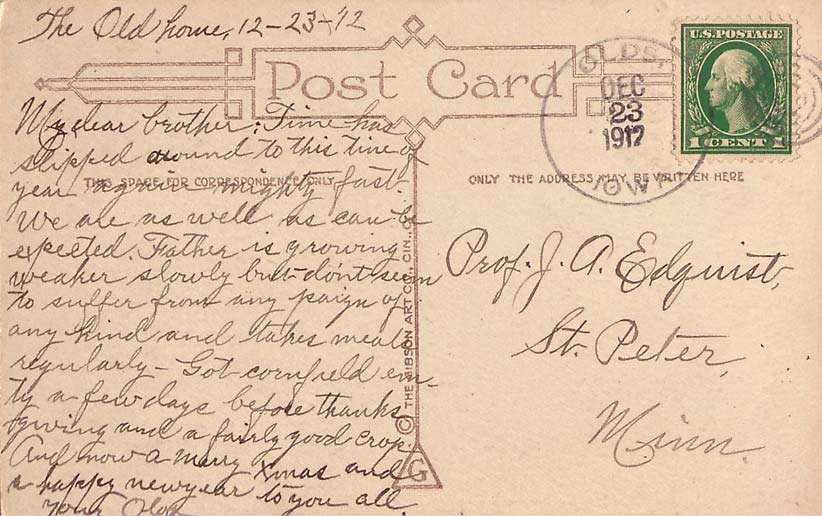 The Old home, 12-23-'12
Post Card
My dear brother: Time has
slipped around to this time of
year again mighty fast.
We are as well as can be
expected. Father is growing
weaker slowly but dont seem
to suffer from any paign of
any kind and takes meals
regularly - Got cornfield em-
ty a few days before thanks-
giving and a fairly good crop.
And now a merry Xmas and
a happy newyear to you all
Your Olof
THIS SPACE FOR CORRESPONDENCE ONLY
© THE GIBSON ART CO., CIN., O.
G
OLDS,
DEC
23
1912
IOWA
U.S. POSTAGE
1 CENT 1
ONLY THE ADDRESS MAY BE WRITTEN HERE
Prof. J. A. Edquist,
St. Peter,
Minn.